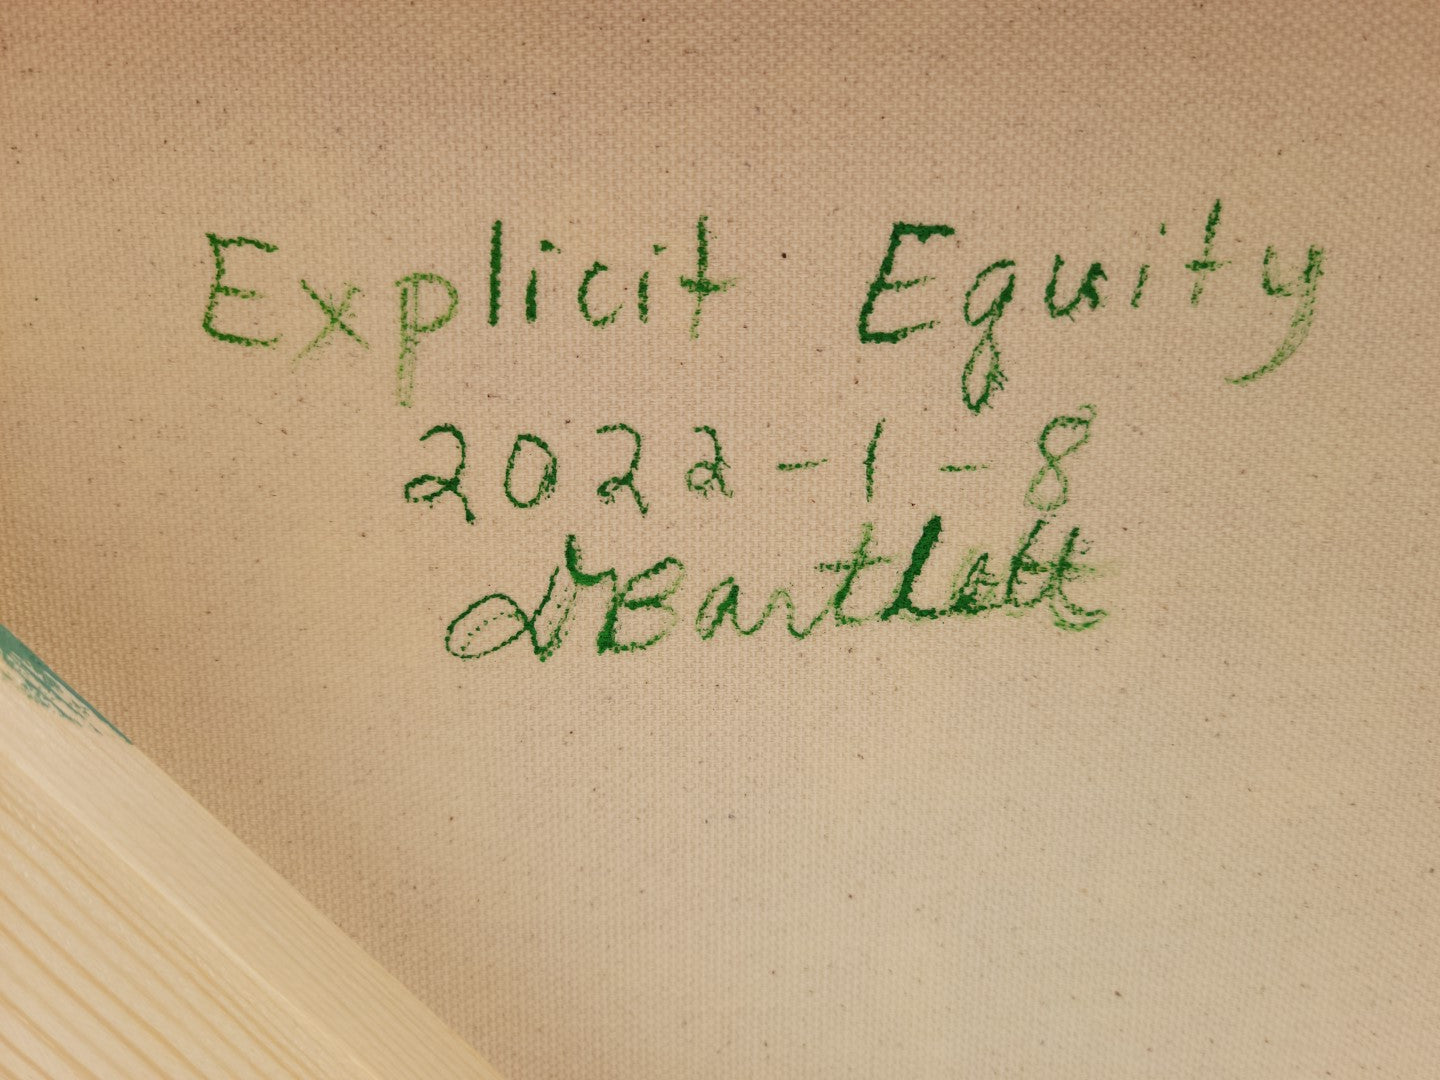 Explicit Equity
2022-1-8
DBartlett